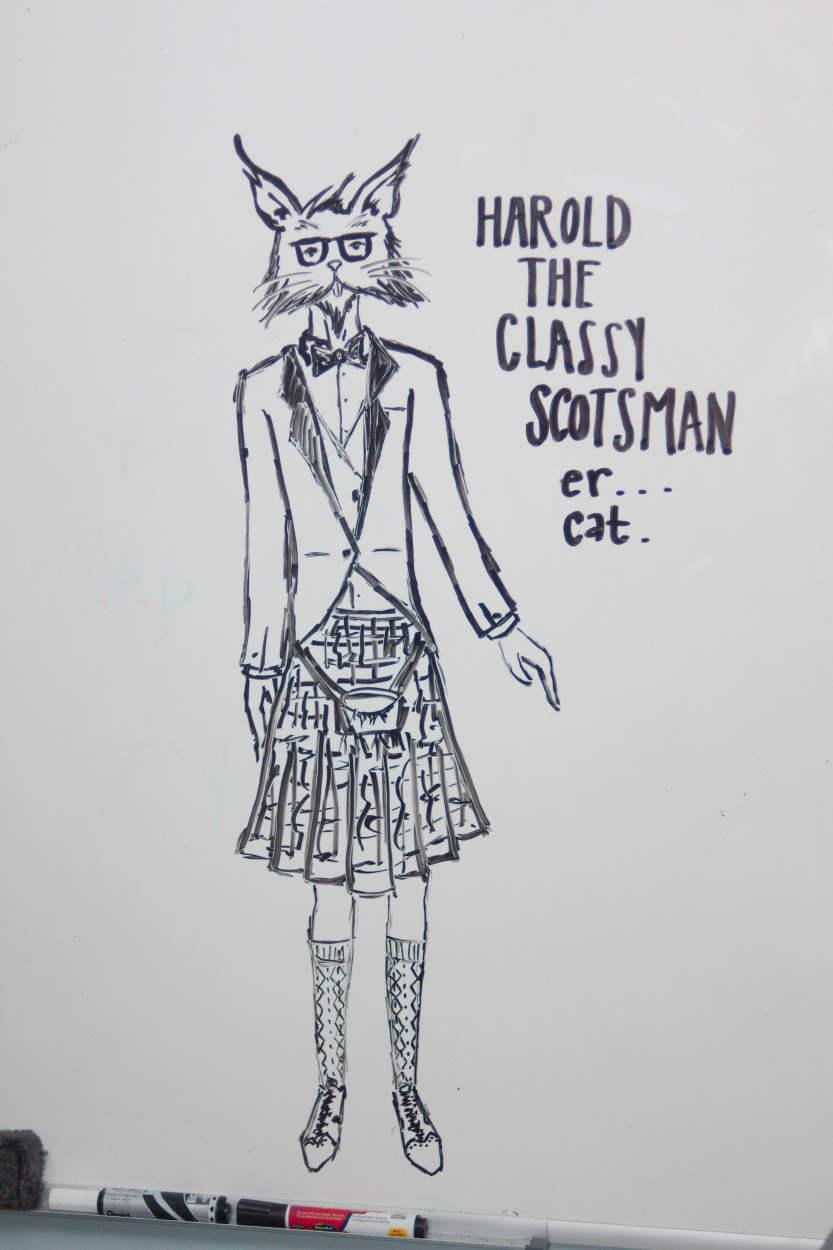 HAROLD
THE
CLASSY
SCOTSMAN
er...
cat.